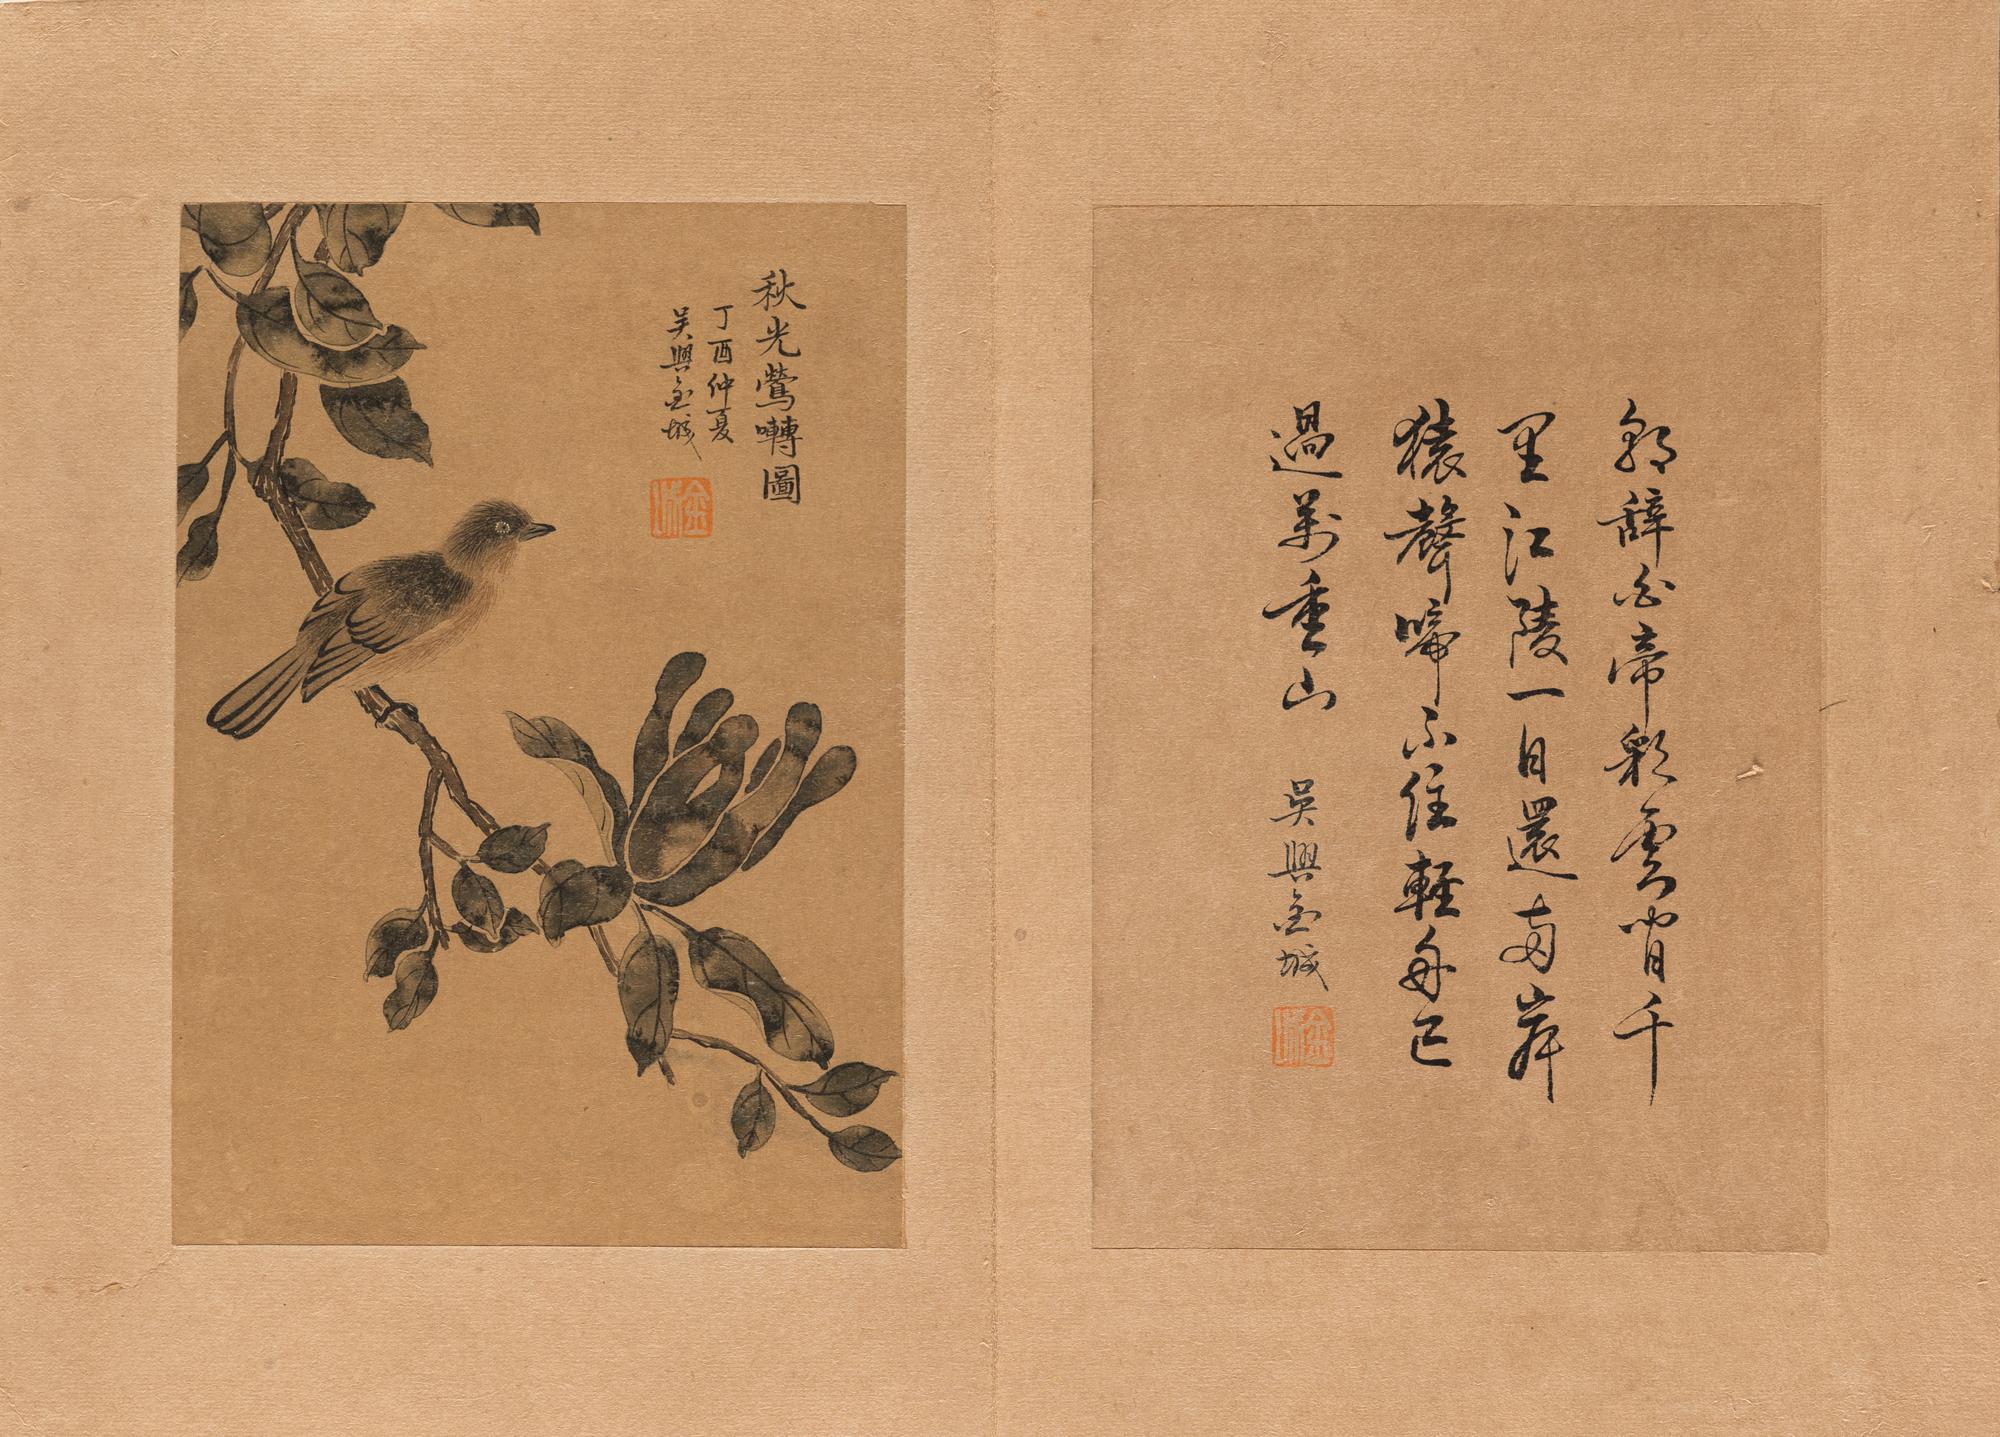 朝辭白帝彩雲間千
里江陵一日還兩岸
猿聲啼不住輕舟已
過萬重山 吳興金城
秋光鶯囀圖
丁酉仲夏
吳興金城